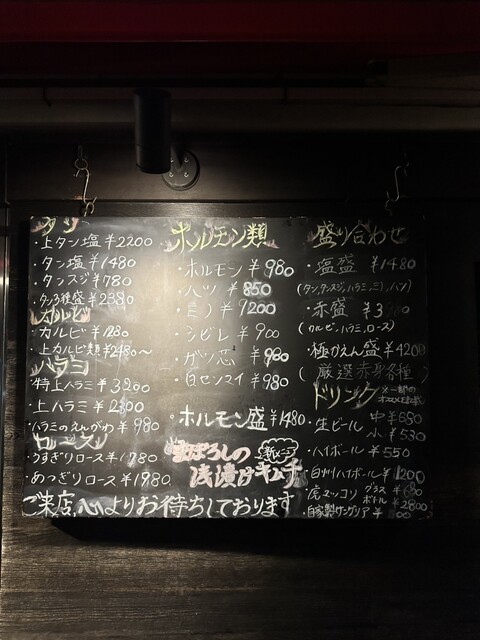 タン
・上タン塩 ¥2200
・タン塩 ¥1480
・タンスジ ¥780
・タン3種盛 ¥2380
カルビ
・カルビ ¥1280
・上カルビ類 ¥2480〜
ハラミ
・特上ハラミ ¥3200
・上ハラミ ¥2300
・ハラミのえんがわ ¥980
ロース
・うすぎりロース ¥1780
・めっぎりロース ¥1980
ホルモン類
・ホルモン ¥980
・ハツ ¥850
・ミノ ¥1200
・シビレ ¥900
・ガツ芯 ¥980
・白センマイ ¥980
・ホルモン盛 ¥1480
まぼろしの
浅漬けキムチ
新メニュー
盛り合わせ
・塩盛 ¥1480
(タン,タンスジ,ハラミ,ミノ,ハツ)
・赤盛 ¥3
(カルビ,ハラミ,ロース)
・極かえん盛 ¥4200
(厳選赤身各種)
ドリンク
・生ビール 中¥650
小¥530
・ハイボール ¥550
・白州ハイボール ¥1200
・虎マッコリ グラス
ボトル ¥2800
・自家製サングリア
ご来店、心よりお待ちしております